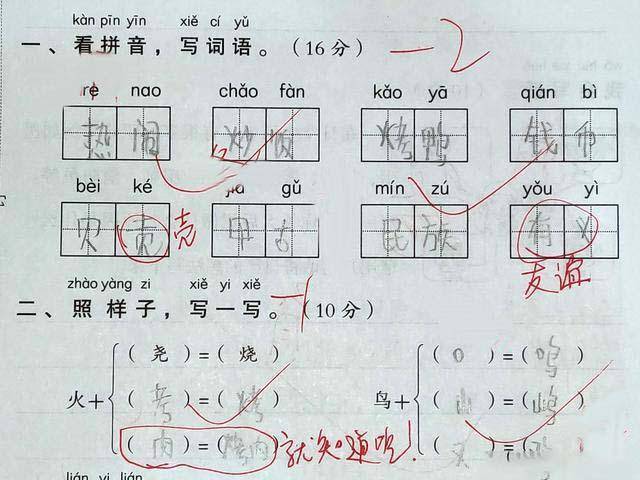 kàn pīn yīn xiě cí yǔ
一、看拼音，写词语。（16分） —2
rè nao chǎo fàn kǎo yā qián bì
热闹 炒饭 烤鸭 钱币
bèi ké jiǎ gǔ mín zú yǒu yì
贝壳 壳 甲古 民族 有义
友谊
zhào yàng zi xiě yi xiě
二、照样子，写一写。 —1 （10分）
（尧）=（烧） （口）=（鸣）
火+ （考）=（烤） 鸟+ （山）=（
（肉）=（ 就知道吃！
lián yi lián